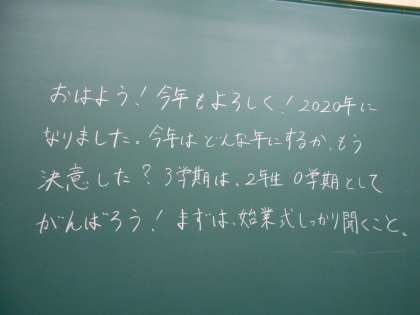 おはよう！今年もよろしく！2020年に
なりました。今年はどんな年にするか、もう
決意した？3学期は、2年生0学期として
がんばろう！まずは、始業式しっかり聞くこと、